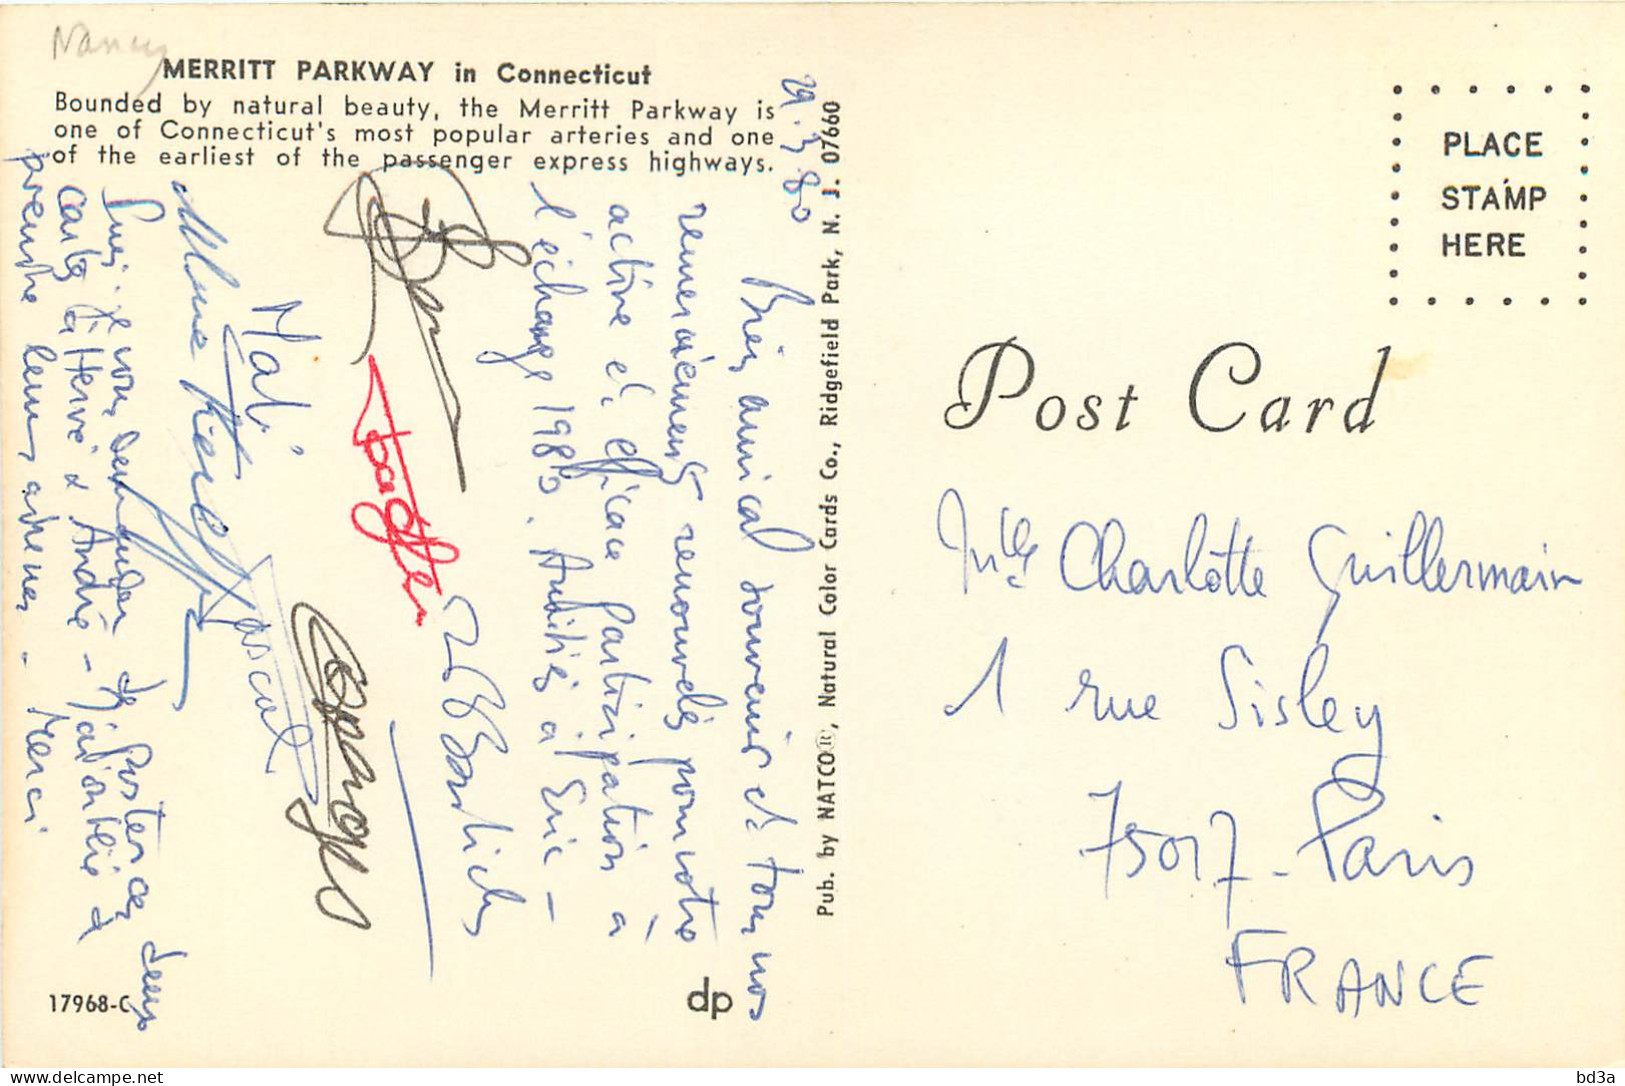 Nancy
MERRITT PARKWAY in Connecticut
Bounded by natural beauty, the Merritt Parkway is
one of Connecticut's most popular arteries and one
of the earliest of the passenger express highways.
29.3.80
Bien amical souvenir et tous nos
remerciements renouvelés pour votre
active et efficace participation à
l'échange 1980. Amitiés à Eric -
Mati
Pascal
Puis-je vous demander de poster ces deux
cartes à Hervé & André - j'ai oublié de
prendre leurs adresses - Merci
17968-C
dp
Pub. by NATCO®, Natural Color Cards Co., Ridgefield Park, N. J. 07660
PLACE
STAMP
HERE
Post Card
Mlle Charlotte Guillermain
1 rue Sisley
75017 - Paris
FRANCE
delcampe.net
bd3a